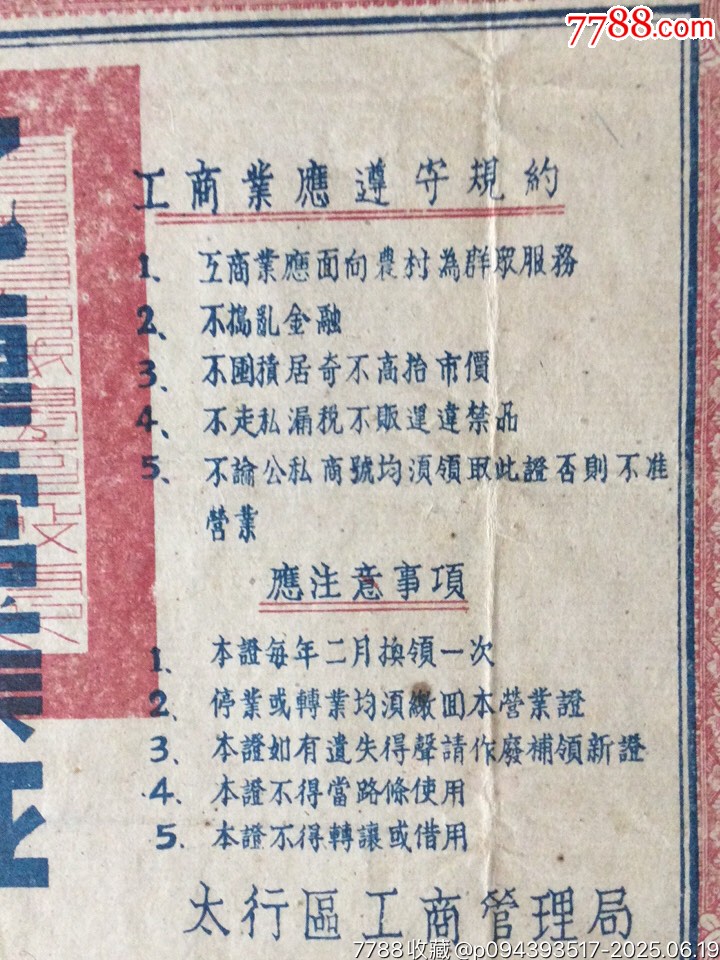 7788.com
工商業應遵守規約
1、工商業應面向農村為群眾服務
2、不搗亂金融
3、不囤積居奇不高抬市價
4、不走私漏税不販運違禁品
5、不論公私商號均須領取此證否則不准
營業
應注意事項
1、本證每年二月換領一次
2、停業或轉業均須繳回本營業證
3、本證如有遺失得聲請作廢補領新證
4、本證不得當路條使用
5、本證不得轉讓或借用
太行區工商管理局
7788收藏@p094393517-2025.06.19